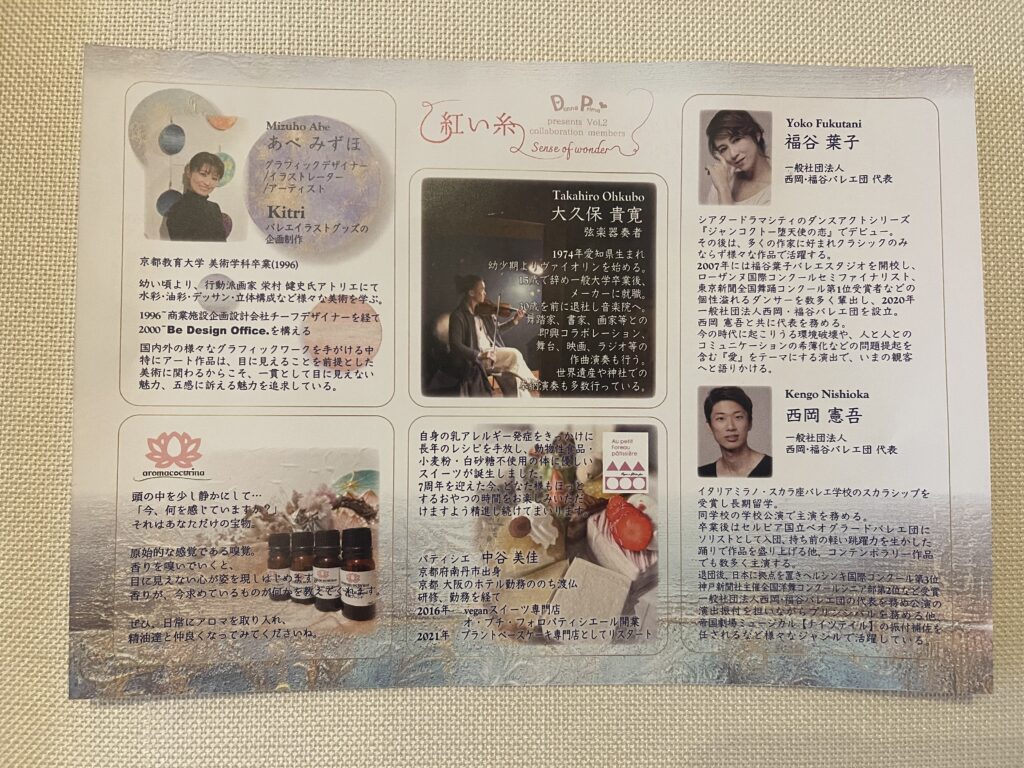 Donna Prima
presents Vol.2
collaboration members
紅い糸
Sense of wonder
Mizuho Abe
あべ みずほ
グラフィックデザイナー
/イラストレーター
/アーティスト
Kitri
バレエイラストグッズの
企画制作
京都教育大学 美術学科卒業(1996)
幼い頃より、行動派画家 栄村 健史氏アトリエにて
水彩・油彩・デッサン・立体構成など様々な美術を学ぶ。
1996~商業施設企画設計会社チーフデザイナーを経て
2000~Be Design Office.を構える
国内外の様々なグラフィックワークを手がける中
特にアート作品は、目に見えることを前提とした
美術に関わるからこそ、一貫として目に見えない
魅力、五感に訴える魅力を追求している。
Takahiro Ohkubo
大久保 貴寛
弦楽器奏者
1974年愛知県生まれ
幼少期よりヴァイオリンを始める。
15歳で辞め一般大学卒業後、
メーカーに就職。
30歳を前に退社し音楽院へ。
舞踏家、書家、画家等との
即興コラボレーション、
舞台、映画、ラジオ等の
作曲演奏も行う。
世界遺産や神社での
演奏も多数行っている。
Yoko Fukutani
福谷 葉子
一般社団法人
西岡・福谷バレエ団 代表
シアタードラマシティのダンスアクトシリーズ
『ジャンコクトー堕天使の恋』でデビュー。
その後は、多くの作家に好まれクラシックのみ
ならず様々な作品で活躍する。
2007年には福谷葉子バレエスタジオを開校し、
ローザンヌ国際コンクールセミファイナリスト、
東京新聞全国舞踊コンクール第1位受賞者などの
個性溢れるダンサーを数多く輩出し、2020年
一般社団法人西岡・福谷バレエ団を設立。
西岡 憲吾と共に代表を務める。
今の時代に起こりうる環境破壊や、人と人との
コミュニケーションの希薄化などの問題提起を
含む『愛』をテーマにする演出で、いまの観客
へと語りかける。
Kengo Nishioka
西岡 憲吾
一般社団法人
西岡・福谷バレエ団 代表
イタリアミラノ・スカラ座バレエ学校のスカラシップを
受賞し長期留学。
同学校の学校公演で主演を務める。
卒業後はセルビア国立ベオグラードバレエ団に
ソリストとして入団、持ち前の軽い跳躍力を生かした
踊りで作品を盛り上げる他、コンテンポラリー作品
でも数多く主演する。
退団後、日本に拠点を置きヘルシンキ国際コンクール第3位
神戸新聞社主催全国洋舞コンクールシニア部第2位など受賞
一般社団法人西岡・福谷バレエ団の代表を務め公演の
演出振付を担いながらプリンシパルを務める他
帝国劇場ミュージカル【ナイツテイル】の振付補佐を
任されるなど様々なジャンルで活躍している。
aromacocorina
頭の中を少し静かにして…
「今、何を感じていますか？」
それはあなただけの宝物。
原始的な感覚である嗅覚。
香りを嗅いでいくと、
目に見えない心が姿を現しはじめます
香りが、今求めているものが何かを教えてくれます。
ぜひ、日常にアロマを取り入れ、
精油達と仲良くなってみてくださいね。
自身の乳アレルギー発症をきっかけに
長年のレシピを手放し、動物性食品・
小麦粉・白砂糖不使用の体に優しい
スイーツが誕生しました。
7周年を迎えた今、どなた様もほっと
するおやつの時間をお楽しみいただ
けますよう精進し続けてまいります
Au petit
Foreau
pâtissière
パティシエ 中谷 美佳
京都府南丹市出身
京都 大阪のホテル勤務ののち渡仏
研修、勤務を経て
2016年 veganスイーツ専門店
オ・プチ・フォロパティシエール開業
2021年 プラントベースケーキ専門店としてリスタート